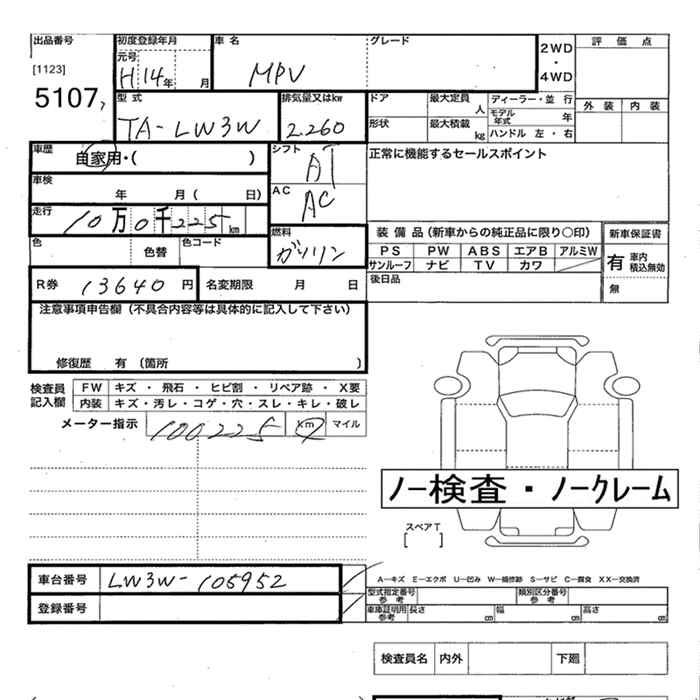 出品番号 初度登録年月 車名 グレード
[1123] 元号 H14年 月 MPV 2WD・4WD 評価点
5107, 型式 TA-LW3W 排気量又はkw 2.260 ドア 最大定員 人 ディーラー・並行 外装 内装
形状 最大積載 kg モデル年式 年
ハンドル 左・右
車歴 自家用・( ) シフト AT 正常に機能するセールスポイント
車検 年 月( 日) AC AC
走行 10万0千225km 燃料 ガソリン 装備品(新車からの純正品に限り○印) 新車保証書
色 色替 色コード PS PW ABS エアB アルミW 有 車内積込無効
サンルーフ ナビ TV カワ
R券 13640円 名変期限 月 日 後日品 無
注意事項申告欄(不具合内容等は具体的に記入して下さい)
修復歴 有(箇所 )
検査員記入欄 FW キズ・飛石・ヒビ割・リペア跡・X要
内装 キズ・汚レ・コゲ・穴・スレ・キレ・破レ
メーター指示 100225 km マイル
ノー検査・ノークレーム
スペアT
[ ]
車台番号 LW3W-105952 A-キズ E-エクボ U-凹み W-補修跡 S-サビ C-腐食 XX-交換済
登録番号 型式指定番号参考 類別区分番号参考
車庫証明用参考 長さ cm 幅 cm 高さ cm
検査員名 内外 下廻